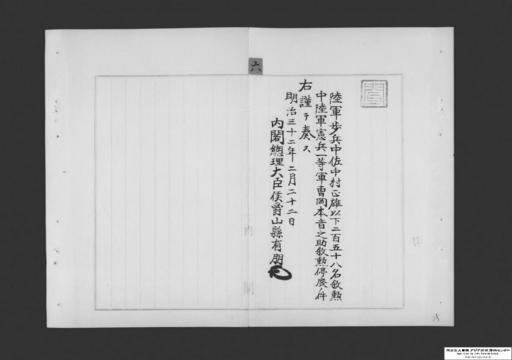 六
陸軍歩兵中佐中村正雄以下二百五十八名敘勲
中陸軍憲兵一等軍曹岡本音之助敘勲停廃ノ件
右謹テ奏ス
明治三十二年二月二十二日
内閣総理大臣侯爵山縣有朋